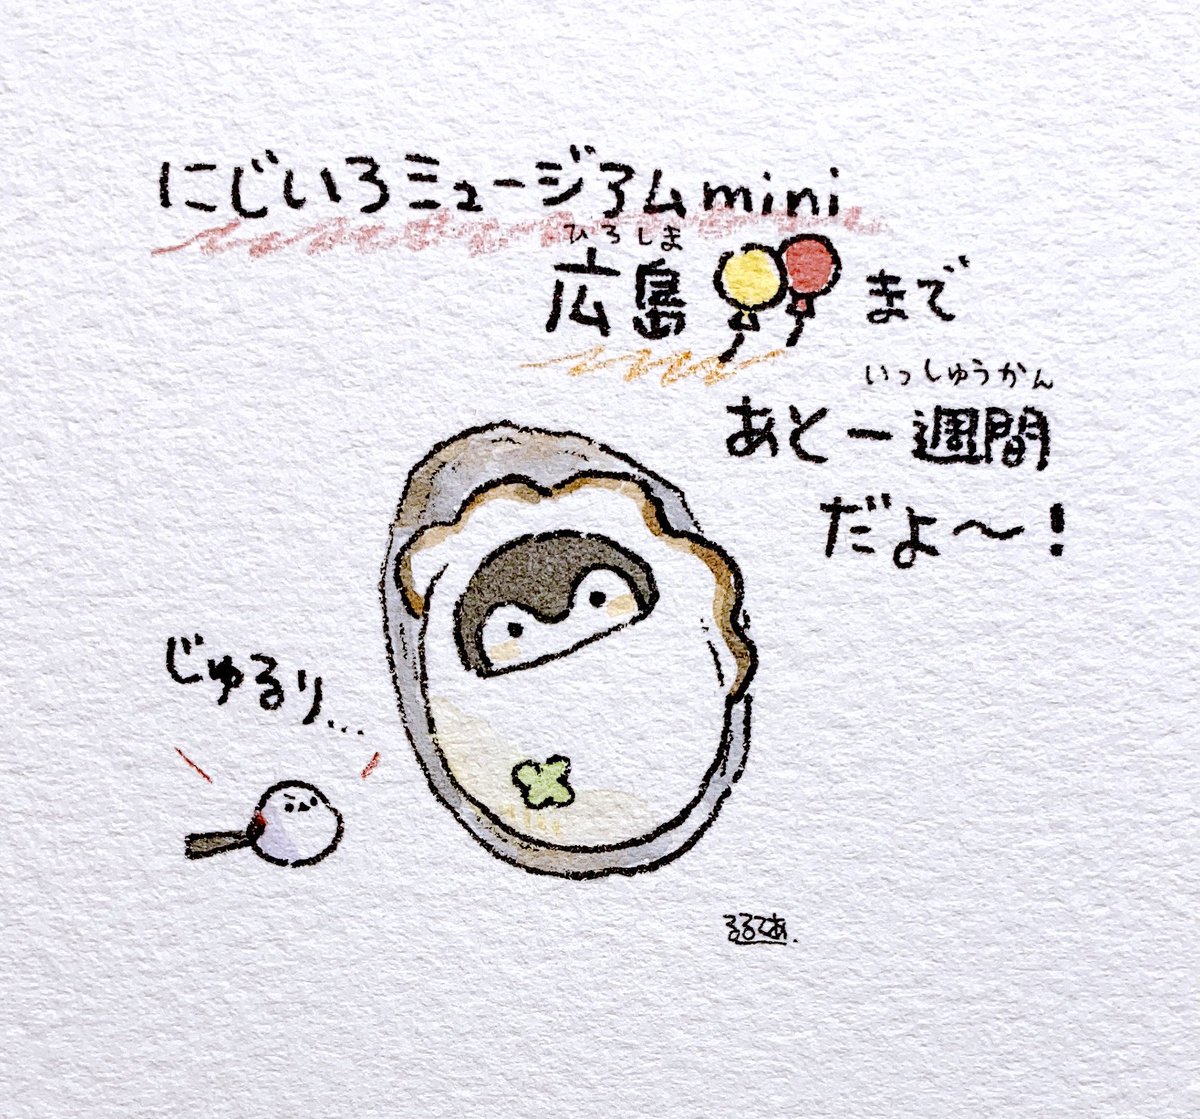 にじいろミュージアムmini
ひろしま
広島まで
いっしゅうかん
あと一週間
だよ〜！
じゅるり…
るるてあ.